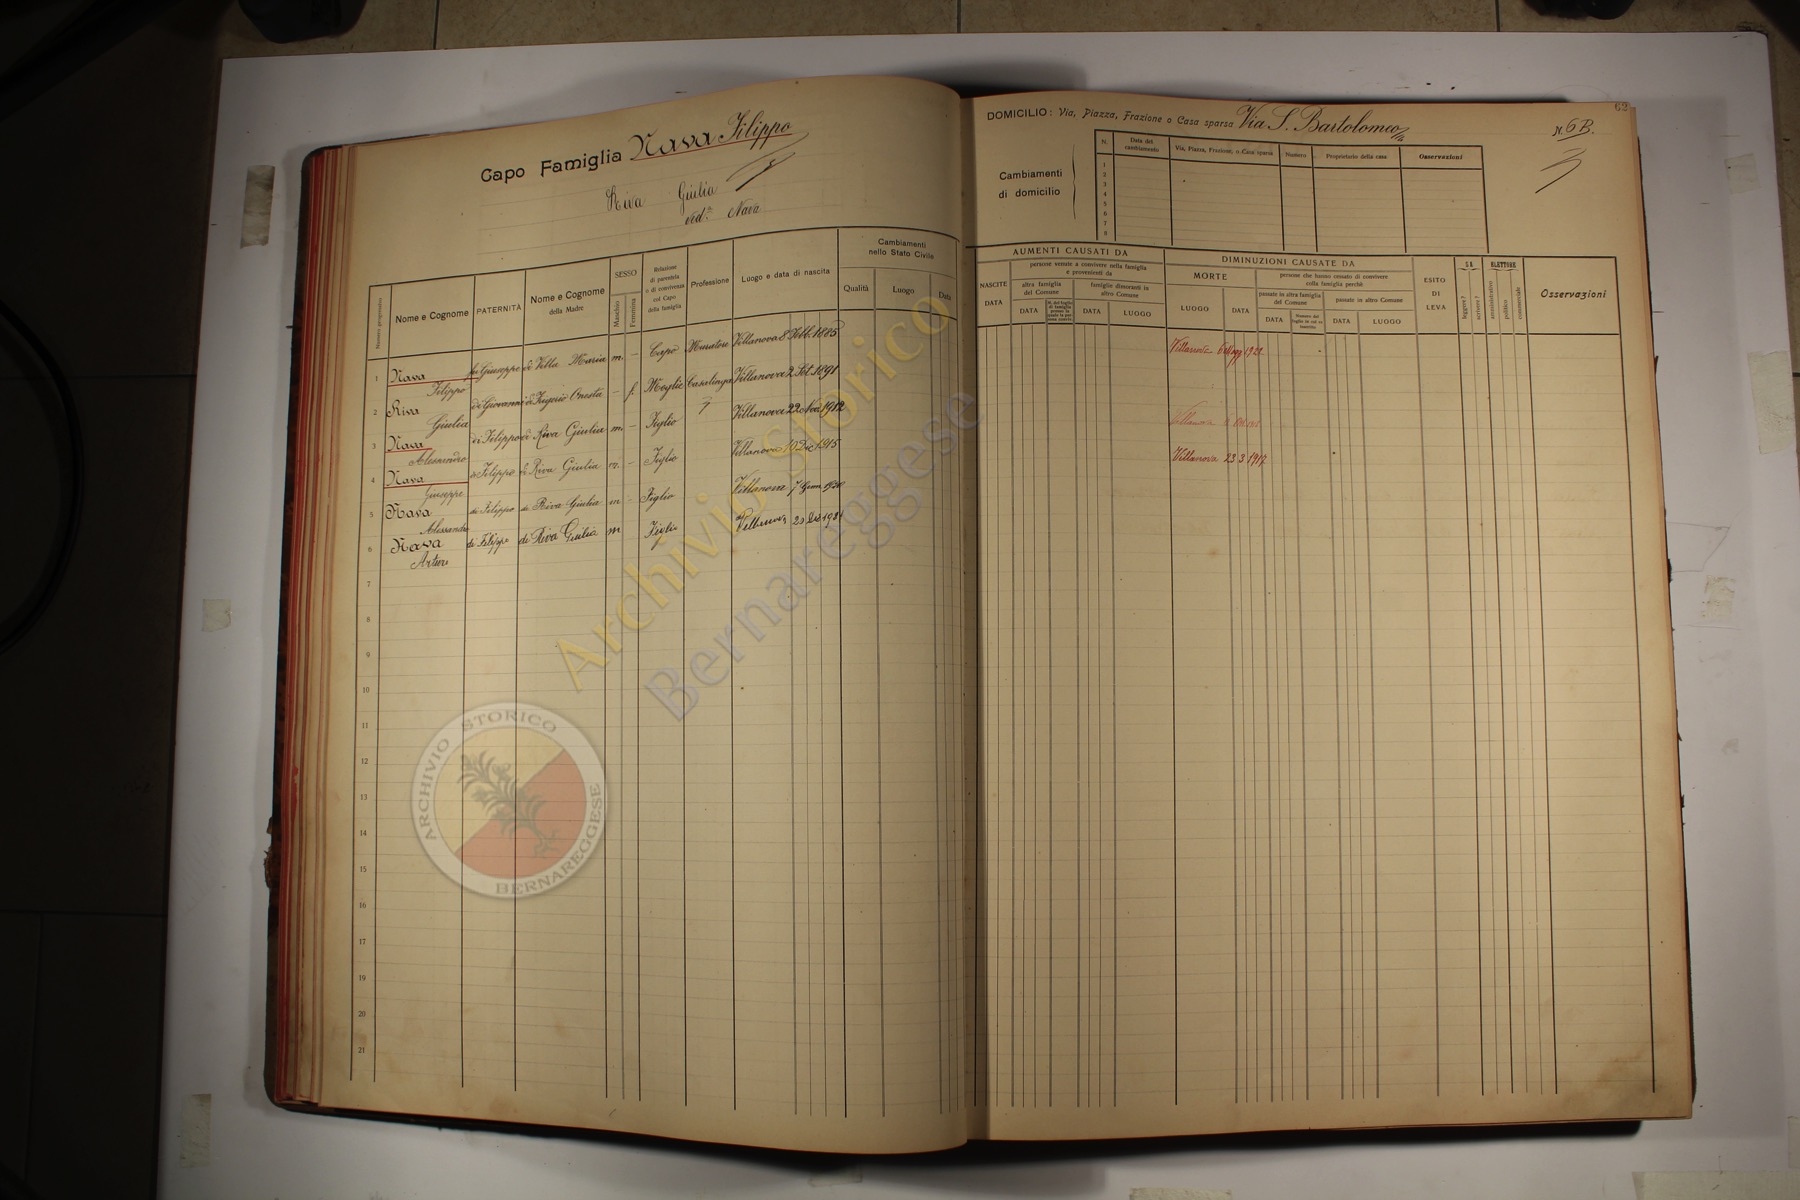 Capo Famiglia Nava Filippo
Riva Giulia
ved.a Nava
Numero progressivo
Nome e Cognome
PATERNITÀ
Nome e Cognome
della Madre
SESSO
Maschio
Femmina
Relazione
di parentela
o di convivenza
col Capo
della famiglia
Professione
Luogo e data di nascita
Cambiamenti
nello Stato Civile
Qualità
Luogo
Data
1 Nava Filippo fu Giuseppe di Villa Maria m. – Capo Muratore Villanova 8 Febb. 1885
2 Riva Giulia di Giovanni di Frigerio Onesta – f. Moglie Casalinga Villanova 2 Set. 1891
3 Nava Alessandro di Filippo di Riva Giulia m. – Figlio Villanova 22 Nov. 1912
4 Nava Giuseppe di Filippo di Riva Giulia m. – Figlio Villanova 10 Dic 1915
5 Nava Alessandro di Filippo di Riva Giulia m – Figlio Villanova 7 Genn 1920
6 Nava Arturo di Filippo di Riva Giulia m Figlio Villanova 20 Dic 1921
7
8
9
10
11
12
13
14
15
16
17
18
19
20
21
62
DOMICILIO: Via, Piazza, Frazione o Casa sparsa Via S. Bartolomeo
N. 6 B.
Cambiamenti
di domicilio
N.
Data del
cambiamento
Via, Piazza, Frazione, o Casa sparsa
Numero
Proprietario della casa
Osservazioni
1
2
3
4
5
6
7
8
AUMENTI CAUSATI DA
NASCITE
DATA
persone venute a convivere nella famiglia
e provenienti da
altra famiglia
del Comune
DATA
famiglie dimoranti in
altro Comune
DATA
LUOGO
DIMINUZIONI CAUSATE DA
MORTE
LUOGO
DATA
persone che hanno cessato di convivere
colla famiglia perchè
passate in altra famiglia
del Comune
DATA
passate in altro Comune
DATA
LUOGO
ESITO
DI
LEVA
SA
leggere?
scrivere?
ELETTORE
amministrativo
politico
commerciale
Osservazioni
Villanova
Villanova
Villanova 23 3 1917
Archivio Storico
Bernareggese
ARCHIVIO STORICO
BERNAREGGESE